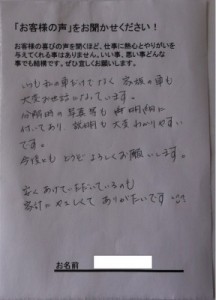 「お客様の声」をお聞かせください！
お客様の喜びの声を聞くほど、仕事に熱心とやりがいを
与えてくれる事はありません。いい事、悪い事どんな
事でも結構です。ぜひ宜しくお願いします。
いつも私の車だけでなく 家族の車も
大変お世話になっています。
分解時の写真等も 説明時に
付いており 説明も大変わかりやすい
です。
今後とも どうぞよろしくお願いします。
安くあげていただいているのも
家計にやさしくて ありがたいです
お名前